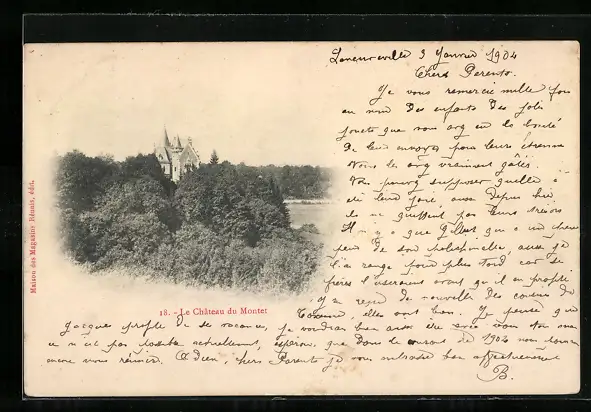 3 Janvier 1904
Chers Parents.
Je vous remercie mille fois
au nom des enfants des jolis
jouets que vous avez eu la bonté
de leur envoyer pour leurs étrennes
Vous les avez vraiment gâtés.
Vous pouvez supposer quelle a
été leur joie, aussi depuis hier
ils ne quittent pas leurs trésors
Il n'y a que Gilbert qui a un peu
peur de son polichinelle, aussi je
l'ai rangé pour plus tard car ses
frères l'useraient avant qu'il en profite
J'ai reçu de nouvelles des cousines de
elles vont bien. Je pense que
18. - Le Château du Montet
Maison des Magasins Réunis, édit.
Jacques profite de ses vacances, je voudrais bien aussi être avec vous tous mais
ce n'est pas possible actuellement, espérons que dans le courant de 1904 nous pourrons
encore nous réunir. Adieu, chers Parents je vous embrasse bien affectueusement
B.